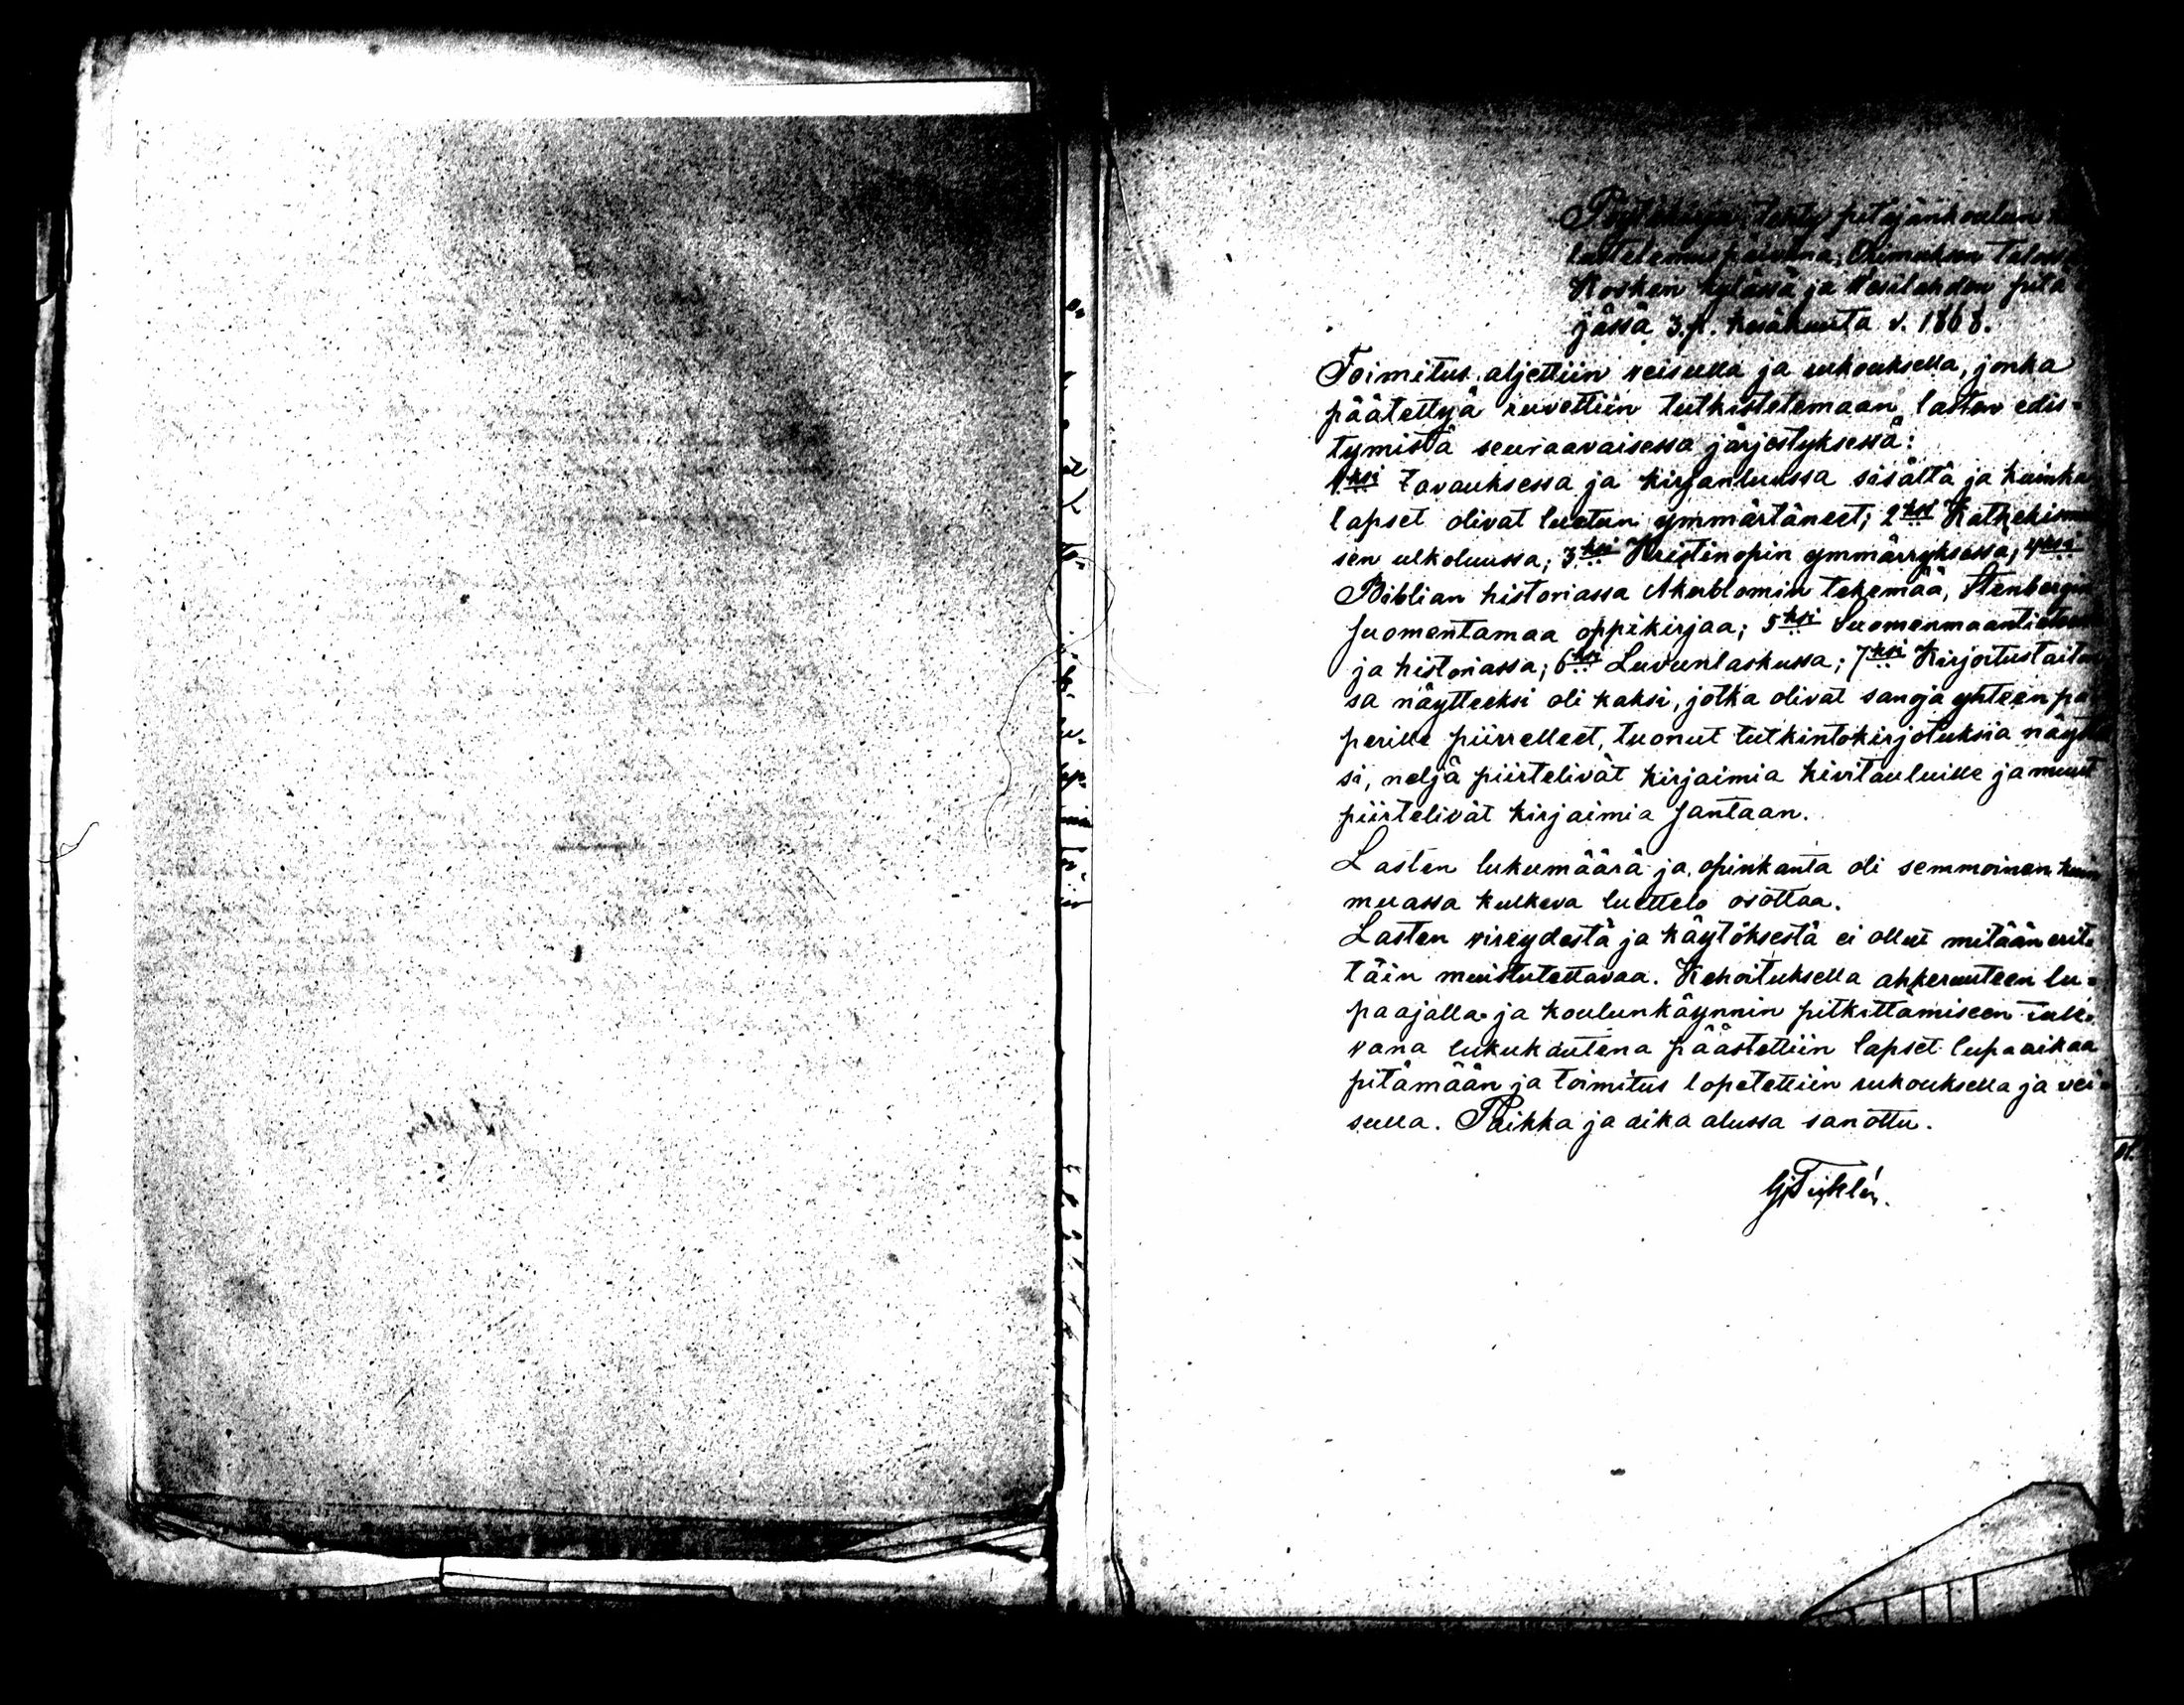 Pöytäkirja, tehty pitäjänkoulun
lastelemuspäivänä, Talossa
Kosken kylässä ja Vesilahden pitä
jässä 3.p. kesäkuuta v. 1868.
Toimitus aljettiin veisulla ja rukouksella, jonka
päätettyä ruvettiin tutkistelemaan lasten edis-
tymistä seuraavaisessa järjestyksessä:
1ksi Tavauksessa ja kirjanluussa sisältä ja kuinka
lapset olivat luetun ymmärtäneet; 2ksi Kathekismu
sen ulkoluussa; 3ksi Kristinopin ymmärryksessä; 4ksi
Biblian historiassa Akerblomin tekemää, Stenbergin
suomentamaa oppikirjaa; 5ksi Suomenmaantieteessä
ja historiassa; 6ksi Luvunlaskussa; 7ksi Kirjoitustaitos
sa näytteeksi oli kaksi, jotka olivat sanoja yhteen pa
perille piirrelleet, tuonut tutkintokirjotuksia näytteek
si, neljä piirtelivät kirjaimia kivitauluille ja muut
piirtelivät kirjaimia santaan.
Lasten lukumäärä ja opinkanta oli semmoinen kuin
muassa kulkeva luettelo osottaa.
Lasten vireydestä ja käytöksestä ei ollut mitään erit-
täin muistutettavaa. Kehoituksella ahkeruuteen lu-
paajalla ja koulunkäynnin pitkittämiseen tule-
vana lukukautena päästettiin lapset lupaaikaa
pitämään ja toimitus lopetettiin rukouksella ja vei-
sulla. Paikka ja aika alussa sanottu.